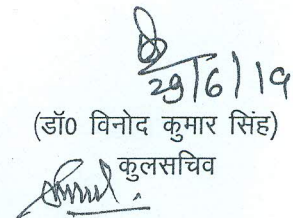 29/6/19
(डॉ0 विनोद कुमार सिंह)
कुलसचिव